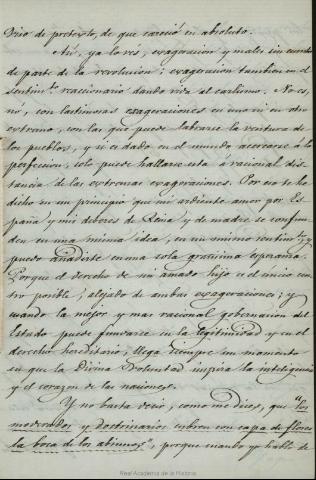 Drio de pretexto, de que careció en absoluto.
Así, ya lo ves, exageracion y males sin cuento
de parte de la revolucion; exageracion tambien en el
sentim.to reaccionario dando vida al carlismo. No es,
nó, con lastimosas exageraciones en uno ni en otro
extremo, con las que puede labrarse la ventura de
los pueblos, y si es dado en el mundo acercarse á la
perfeccion, solo puede hallarse esta á racional dis-
tancia de las extremas exageraciones. Por eso te he
dicho en un principio que mi ardiente amor por Es-
paña y mis deberes de Reina y de madre se confun-
den en una misma idea, en un mismo sentim.to, y
puedo añadirte en una sola gratisima esperanza.
Porque el derecho de mi amado hijo es el único cen-
tro posible, alejado de ambas exageraciones; y
cuando la mejor y mas racional gobernacion del
Estado puede fundarse en la legitimidad y en el
derecho hereditario, llega siempre un momento
en que la Divina Voluntad inspira la inteligencia
y el corazon de las naciones.
Y no basta decir, como me dices, que "los
moderados y doctrinarios cubren con capa de flores
la boca de los abismos", porque cuando yo hablo de
Real Academia de la Historia